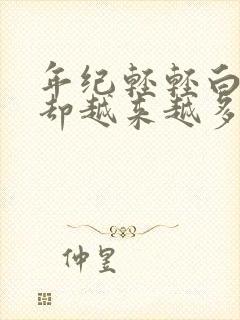 年纪轻轻白
却越来越多
仲昱